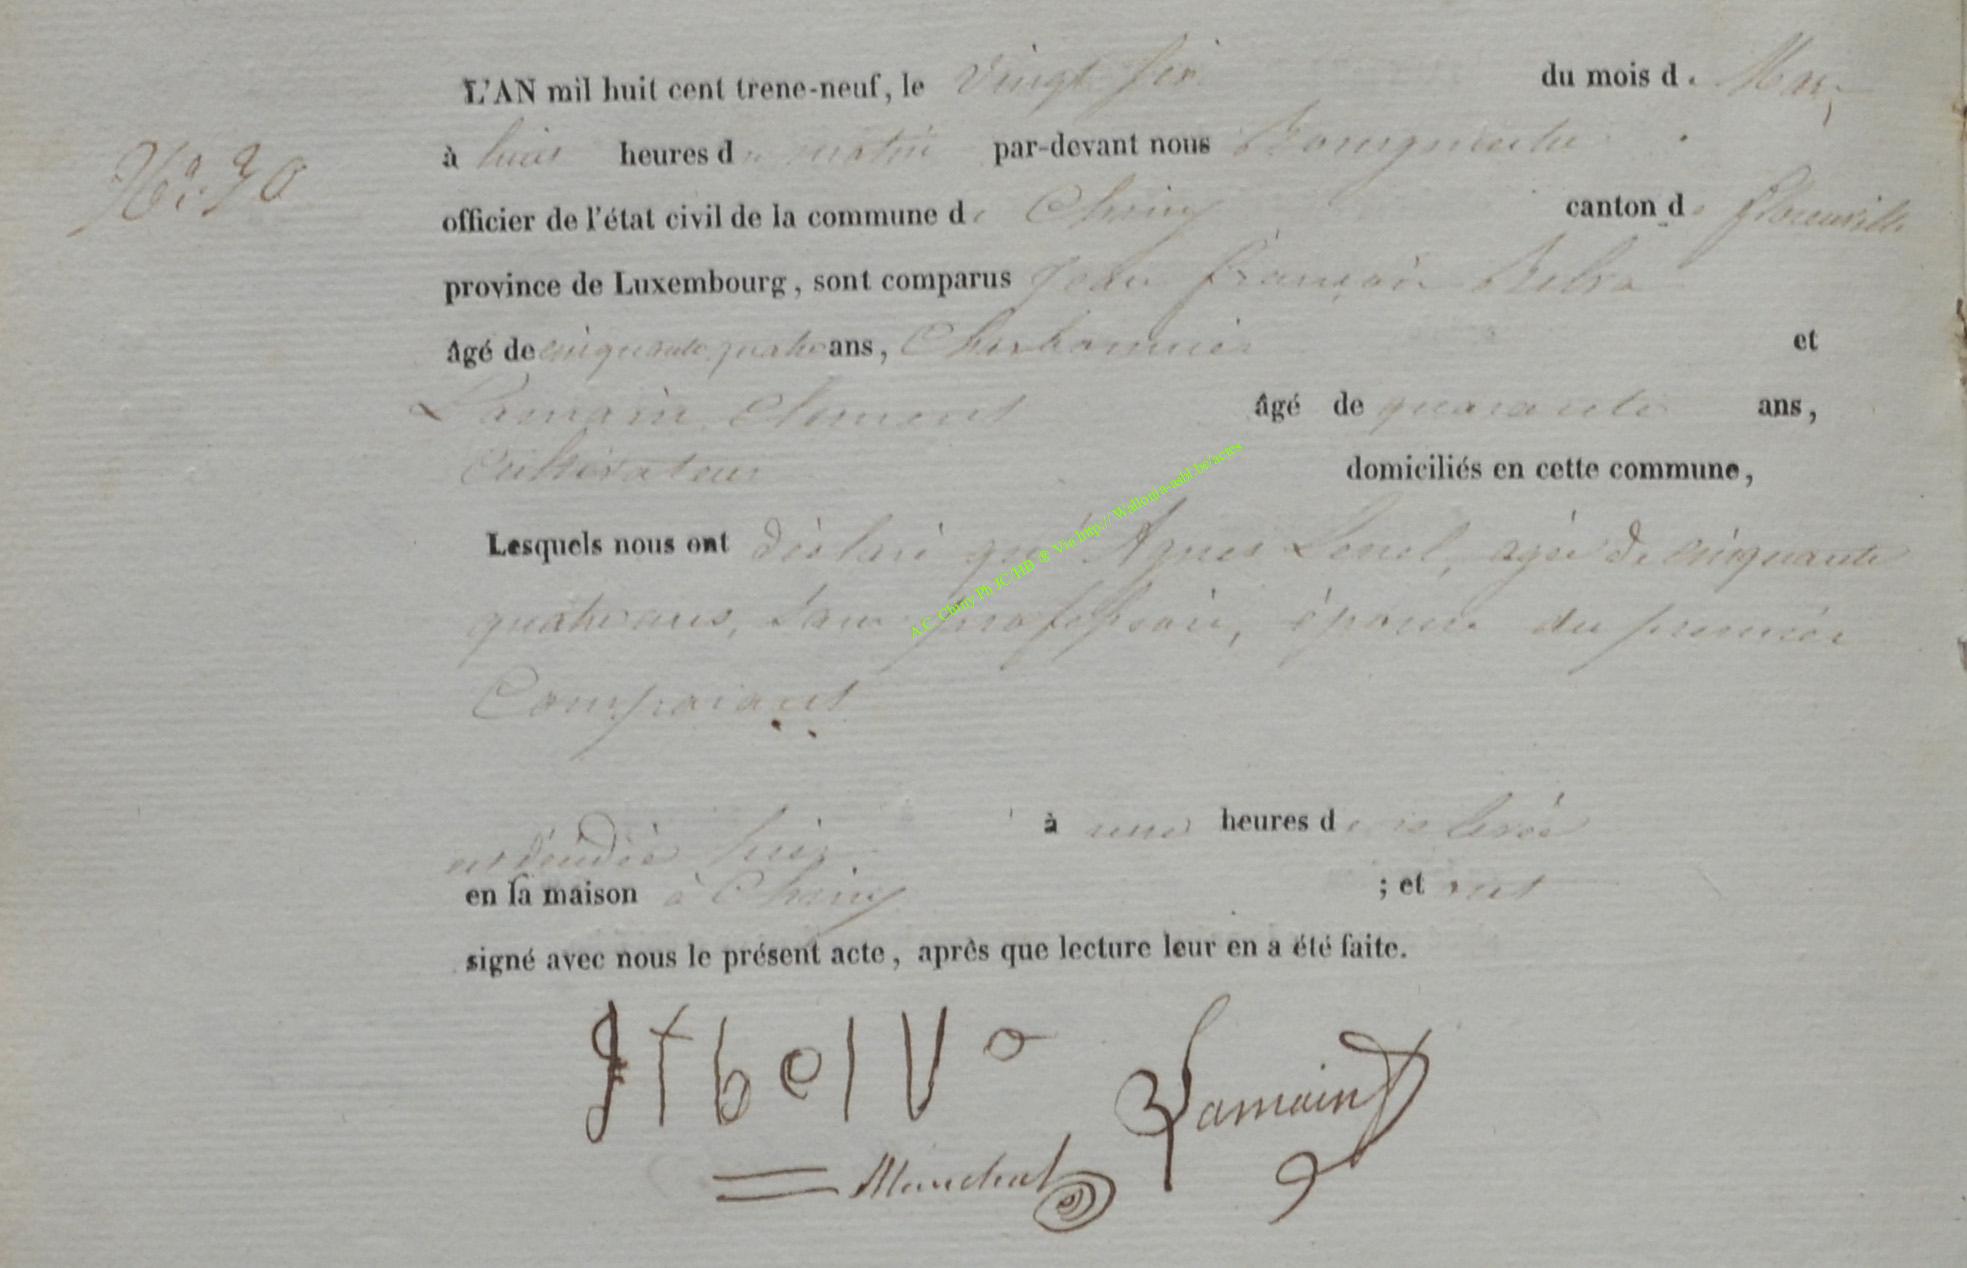 L'AN mil huit cent trene-neuf, le Vingt six du mois de Mars
à huit heures du matin par-devant nous Bourgmestre
N°. 30
officier de l'état civil de la commune de Chiny canton de Florenville
province de Luxembourg, sont comparus Jean françois Belva
âgé de cinquante quatre ans, Charbonnier et
Lamain Clement âgé de quarante ans,
Cultivateur domiciliés en cette commune,
Lesquels nous ont déclaré que Agnes, agée de cinquante
quatre ans, sans profession, épouse du premier
Comparant
est décédée hier à une heures de relevée
en sa maison à Chiny ; et ont
signé avec nous le présent acte, après que lecture leur en a été faite.
Jf belva Lamain
A.C. Chiny Ph JC HB ® Vie http:// Wallonia-asbl.be/actes